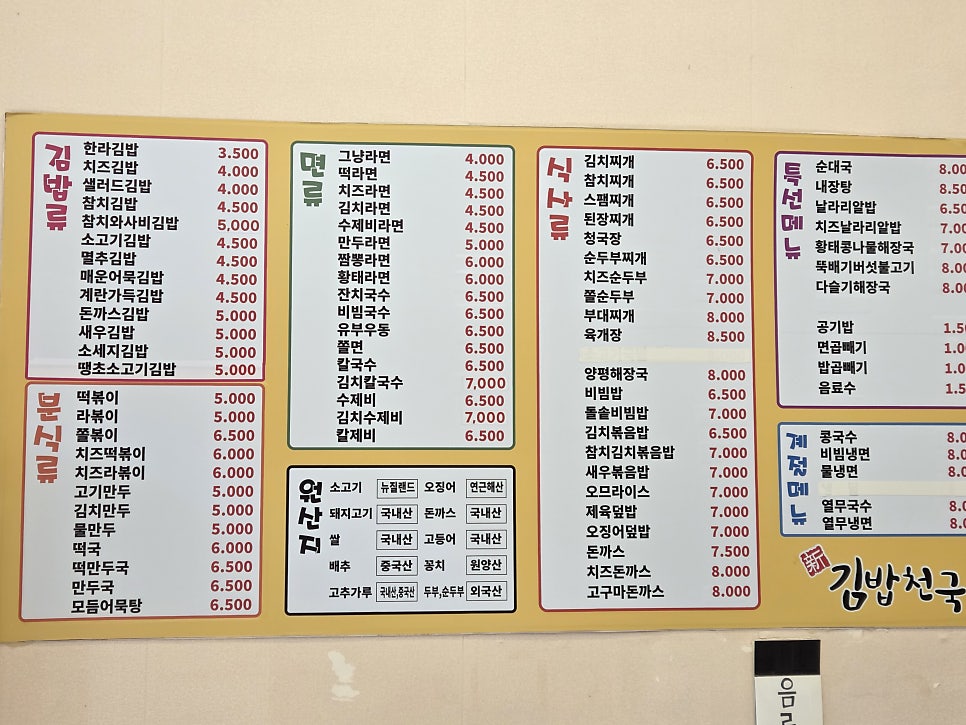 김밥류
한라김밥 3.500
치즈김밥 4.000
샐러드김밥 4.000
참치김밥 4.500
참치와사비김밥 5,000
소고기김밥 4.500
멸추김밥 4.500
매운어묵김밥 4.500
계란가득김밥 4.500
돈까스김밥 5.000
새우김밥 5.000
소세지김밥 5.000
땡초소고기김밥 5.000
분식류
떡볶이 5.000
라볶이 5.000
쫄볶이 6.500
치즈떡볶이 6.000
치즈라볶이 6.000
고기만두 5.000
김치만두 5.000
물만두 5.000
떡국 6.000
떡만두국 6.500
만두국 6.500
모듬어묵탕 6.500
면류
그냥라면 4.000
떡라면 4.500
치즈라면 4.500
김치라면 4.500
수제비라면 4.500
만두라면 5.000
짬뽕라면 6.000
황태라면 6.000
잔치국수 6.500
비빔국수 6.500
유부우동 6.500
쫄면 6.500
칼국수 6.500
김치칼국수 7,000
수제비 6.500
김치수제비 7,000
칼제비 6.500
원산지
소고기 뉴질랜드 오징어 연근해산
돼지고기 국내산 돈까스 국내산
쌀 국내산 고등어 국내산
배추 중국산 꽁치 원양산
고추가루 국내산,중국산 두부,순두부 외국산
식사류
김치찌개 6.500
참치찌개 6.500
스팸찌개 6.500
된장찌개 6.500
청국장 6.500
순두부찌개 6.500
치즈순두부 7.000
쫄순두부 7.000
부대찌개 8.000
육개장 8.500
양평해장국 8.000
비빔밥 6.500
돌솥비빔밥 7.000
김치볶음밥 6.500
참치김치볶음밥 7.000
새우볶음밥 7.000
오므라이스 7.000
제육덮밥 7.000
오징어덮밥 7.000
돈까스 7.500
치즈돈까스 8.000
고구마돈까스 8.000
특선메뉴
순대국 8.00
내장탕 8.50
날라리알밥 6.50
치즈날라리알밥 7.00
황태콩나물해장국 7.00
뚝배기버섯불고기 8.00
다슬기해장국 8.00
공기밥 1.50
면곱빼기 1.0
밥곱빼기 1.0
음료수 1.5
계절메뉴
콩국수 8.0
비빔냉면 8.0
물냉면 8.0
열무국수 8.0
열무냉면 8.0
김밥천국
음